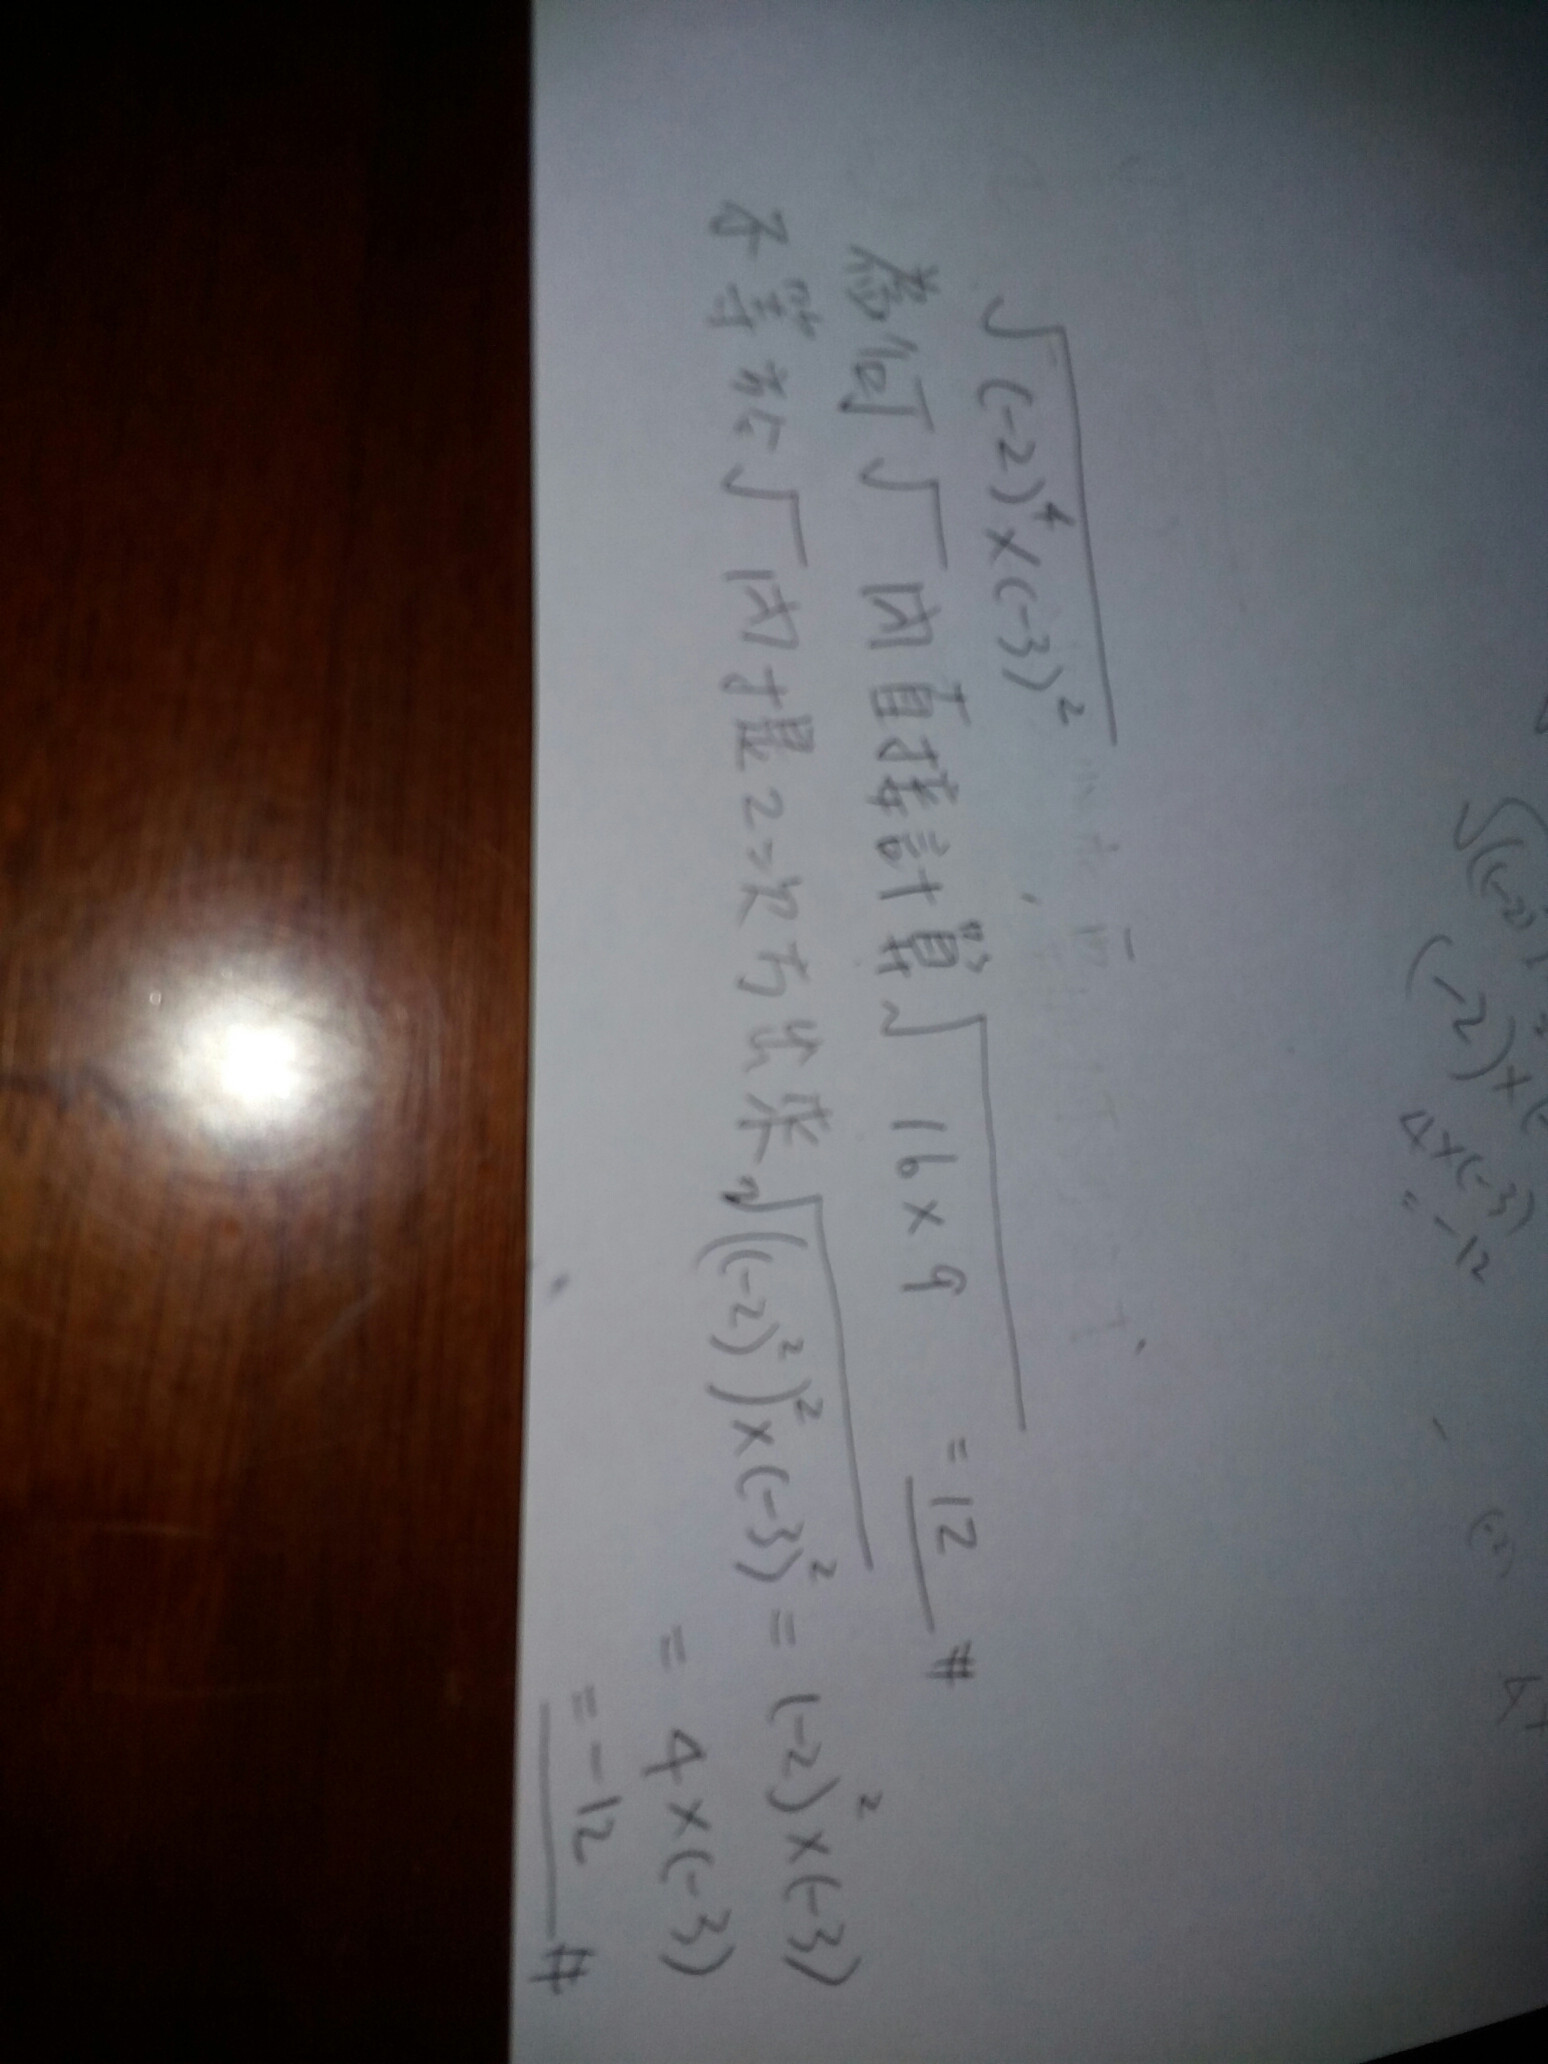 √(-2)⁴×(-3)²
為何√ 內直接計算√16×9 = 12 #
不等於√ 內提2次方出來√((-2)²)²×(-3)² = (-2)²×(-3)
= 4×(-3)
= -12 #
4×(-3)
= -12